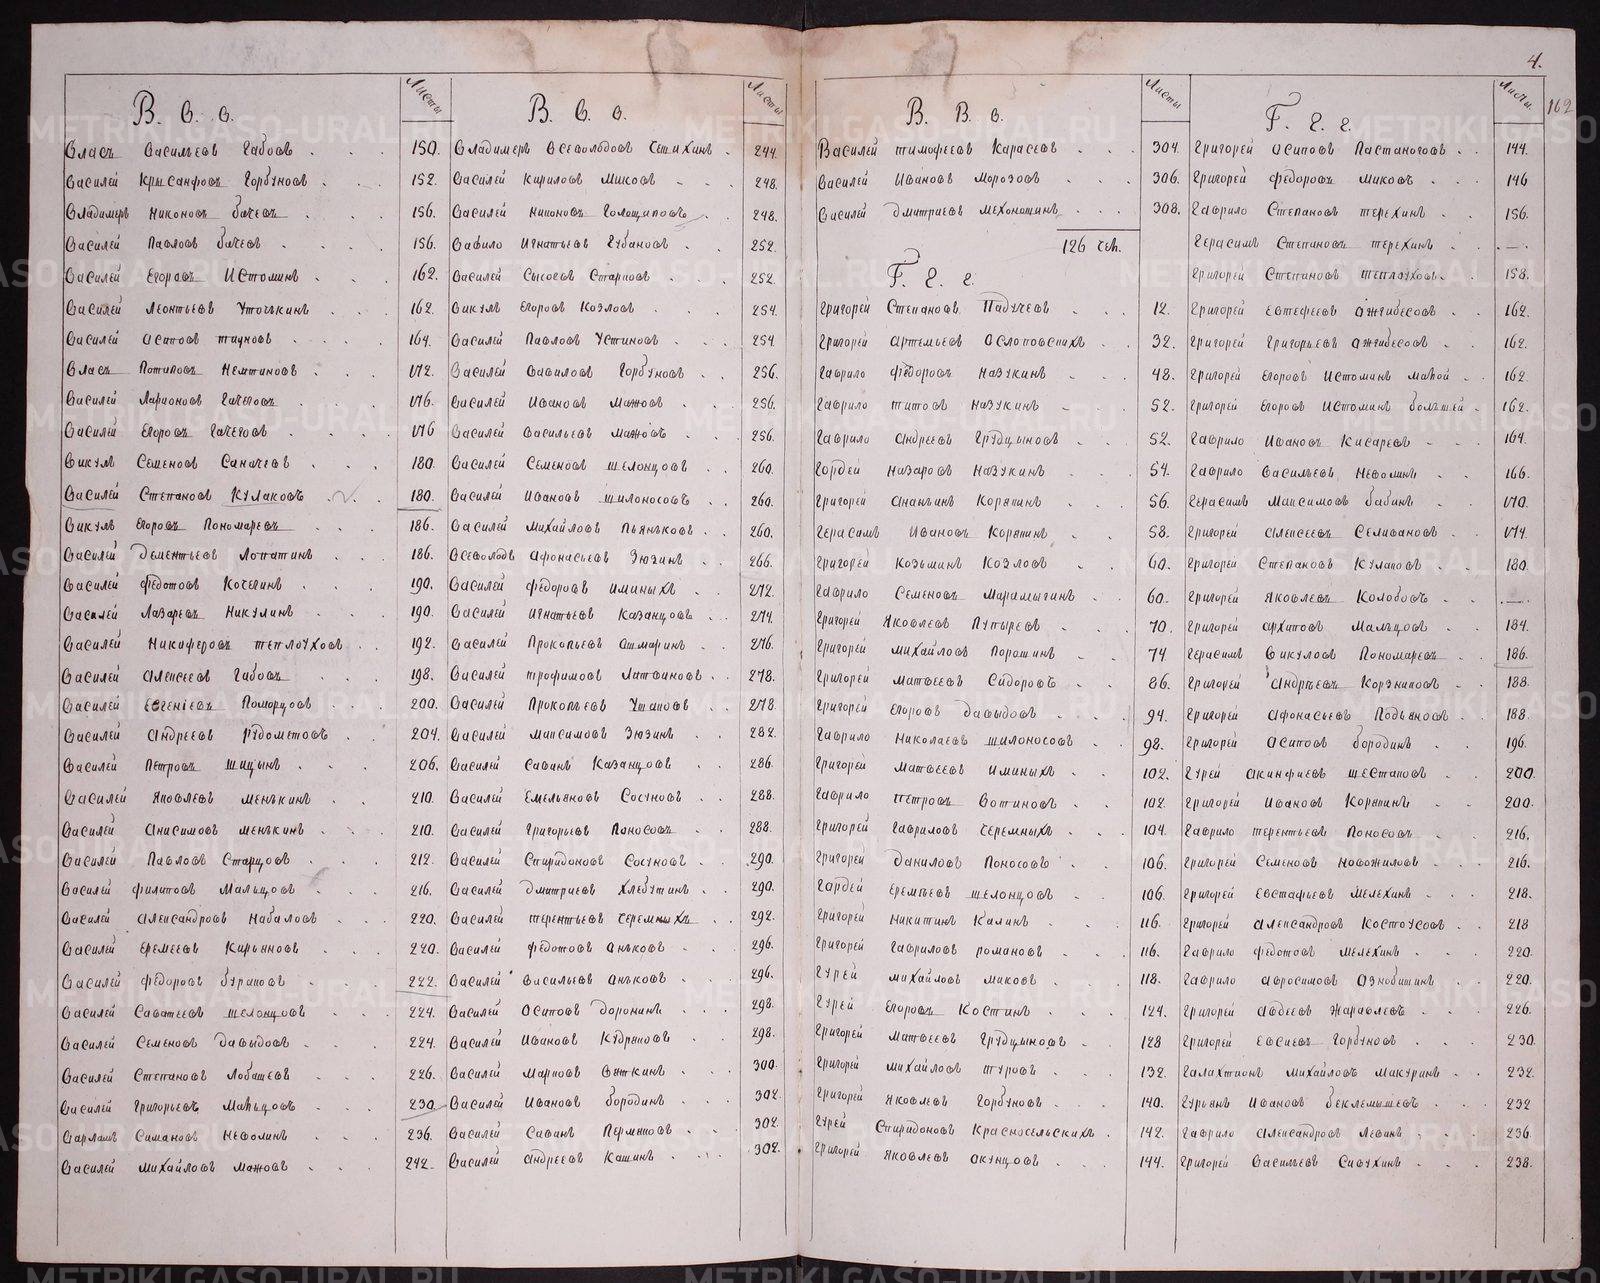 4.
162
В. в. в.
Листы
Власъ Васильевъ Габовъ 150.
Василей Крысанфовъ Горбуновъ 152.
Владимеръ Никоновъ Бачевъ 156.
Василей Павловъ Бачевъ 156.
Василей Егоровъ Истоминъ 162.
Василей Леонтьевъ Уточкинъ 162.
Василей Осиповъ 164.
Власъ Потаповъ 172.
Василей Ларионовъ Гачеговъ 176.
Василей Егоровъ Гачеговъ 176
Викулъ Семеновъ Саначевъ 180.
Василей Степановъ Кулаковъ 180.
Викулъ Егоровъ Пономаревъ 186.
Василей Дементьевъ Лопатинъ 186.
Василей Федотовъ Кочегинъ 190.
Василей Лазаревъ Никулинъ 190.
Василей Никифоровъ Теплоуховъ 192.
Василей Алексеевъ Габовъ 198.
Василей Евгеніевъ Поморцовъ 200.
Василей Андреевъ Рудометовъ 204.
Василей Петровъ Шицынъ 206.
Василей Яковлевъ Менкинъ 210.
Василей Анисимовъ Менкинъ 210.
Василей Павловъ Старцовъ 212.
Василей Филиповъ Мальцовъ 216.
Василей Александровъ Набаловъ 220.
Василей Еремеевъ Кирьяновъ 220.
Василей Федоровъ Бурановъ 222.
Василей Саватеевъ Шелонцовъ 224.
Василей Семеновъ Давыдовъ 224.
Василей Степановъ Лобашевъ 226.
Василей Григорьевъ Мальцовъ 230.
Варламъ Симановъ Неволинъ 236.
Василей Михайловъ Мажовъ 242.
В. в. в.
Листы
Владимеръ Всеволодовъ Сетихинъ 244.
Василей Кириловъ Миковъ 248.
Василей Никоновъ Голощаповъ 248.
Вавило Игнатьевъ Губановъ 252.
Василей Сысоевъ Старковъ 252.
Викулъ Егоровъ Козловъ 254.
Василей Павловъ Устиновъ 254
Василей Вавиловъ Горбуновъ 256.
Василей Ивановъ Мажовъ 256.
Василей Васильевъ Мажовъ 256.
Василей Семеновъ Шелонцовъ 260.
Василей Ивановъ Шилоносовъ 260.
Василей Михайловъ Пьянковъ 260.
Всеволодъ Афонасьевъ Зюзинъ 266.
Василей Федоровъ Иминыхъ 272.
Василей Игнатьевъ Казанцовъ 274.
Василей Прокопьевъ Ошмаринъ 276.
Василей Трофимовъ Литвиновъ 278.
Василей Прокопьевъ Ушаковъ 278
Василей Максимовъ Зюзинъ 282.
Василей Савинъ Казанцовъ 286.
Василей Емельяновъ Сосуновъ 288.
Василей Григорьевъ Поносовъ 288.
Василей Спиридоновъ Сосуновъ 290.
Василей Дмитриевъ Хлебутинъ 290.
Василей Терентьевъ Черемныхъ 292.
Василей Федотовъ Аньковъ 296.
Василей Васильевъ Аньковъ 296.
Василей Осиповъ Доронинъ 298.
Василей Ивановъ Кудряковъ 298.
Василей Марковъ Вяткинъ 300.
Василей Ивановъ Бородинъ 302.
Василей Савинъ Пермяковъ 302.
Василей Андреевъ Кашинъ 302.
В. В. в.
Листы
Василей Тимофеевъ Карасевъ 304.
Василей Ивановъ Морозовъ 306.
Василей Дмитриевъ Мехоношинъ 308.
126 чел.
Г. г. г.
Григорей Степановъ Падучевъ 12.
Григорей Артемьевъ Ослоповскихъ 32.
Гаврило Федоровъ Назукинъ 48.
Гаврило Титовъ Назукинъ 52.
Гаврило Андреевъ Грудцыновъ 52.
Гордей Назаровъ Назукинъ 54.
Григорей Ананьинъ Корякинъ 56.
Герасимъ Ивановъ Корякинъ 58.
Григорей Козьминъ Козловъ 60.
Гаврило Семеновъ Марамыгинъ 60.
Григорей Яковлевъ Пупыревъ 70.
Григорей Михайловъ Порошинъ 74
Григорей Матвеевъ Сидоровъ 86.
Григорей Егоровъ Давыдовъ 94.
Гаврило Николаевъ Шилоносовъ 98.
Григорей Матвеевъ Иминыхъ 102.
Гаврило Петровъ Вотиновъ 102
Григорей Гавриловъ Черемныхъ 104.
Григорей Даниловъ Поносовъ 106.
Гордей Еремеевъ Шелонцовъ 106.
Григорей Никитинъ Калинъ 116.
Григорей Гавриловъ Романовъ 116.
Гурей Михайловъ Миковъ 118.
Гурей Егоровъ Костинъ 124.
Григорей Матвеевъ Грудцыновъ 128
Григорей Михайловъ Туровъ 132.
Григорей Яковлевъ Горбуновъ 140.
Гурей Спиридоновъ Красносельскихъ 142.
Григорей Яковлевъ Окунцовъ 144.
Г. г. г.
Листы.
Григорей Осиповъ Пастаноговъ 144.
Григорей Федоровъ Миковъ 146
Гаврило Степановъ Терехинъ 156.
Герасимъ Степановъ Терехинъ —
Григорей Степановъ Теплоуховъ 158.
Григорей Евтефеевъ Ожгибесовъ 162.
Григорей Григорьевъ Ожгибесовъ 162.
Григорей Егоровъ Истоминъ малой 162
Григорей Егоровъ Истоминъ большей 162.
Гаврило Ивановъ Кисаревъ 164.
Гаврило Васильевъ Неволинъ 166.
Герасимъ Максимовъ Бабинъ 170.
Григорей Алексеевъ Селивановъ 174.
Григорей Степановъ Кулаковъ 180.
Григорей Яковлевъ Колобовъ —
Григорей Архиповъ Мальцовъ 184.
Герасимъ Викуловъ Пономаревъ 186.
Григорей Андреевъ Корзниковъ 188.
Григорей Афонасьевъ Подьяновъ 188.
Григорей Осиповъ Бородинъ 196.
Гурей Акинфиевъ Шестаковъ 200.
Григорей Ивановъ Корякинъ 200.
Гаврило Терентьевъ Поносовъ 216.
Григорей Семеновъ Новожиловъ 216.
Григорей Евстафьевъ Мелехинъ 218.
Григорей Александровъ Костоусовъ 218
Гаврило Федотовъ Мелехинъ 220.
Гаврило Авросимовъ Ознобишинъ 220.
Григорей Авдеевъ Журавлевъ 226.
Григорей Евсиевъ Горбуновъ 230.
Галахтионъ Михайловъ Макуринъ 232.
Гурьянъ Ивановъ Беклемышевъ 232
Гаврило Александровъ Левинъ 236.
Григорей Васильевъ Сивухинъ 238.
METRIKI.GASO-URAL.RU